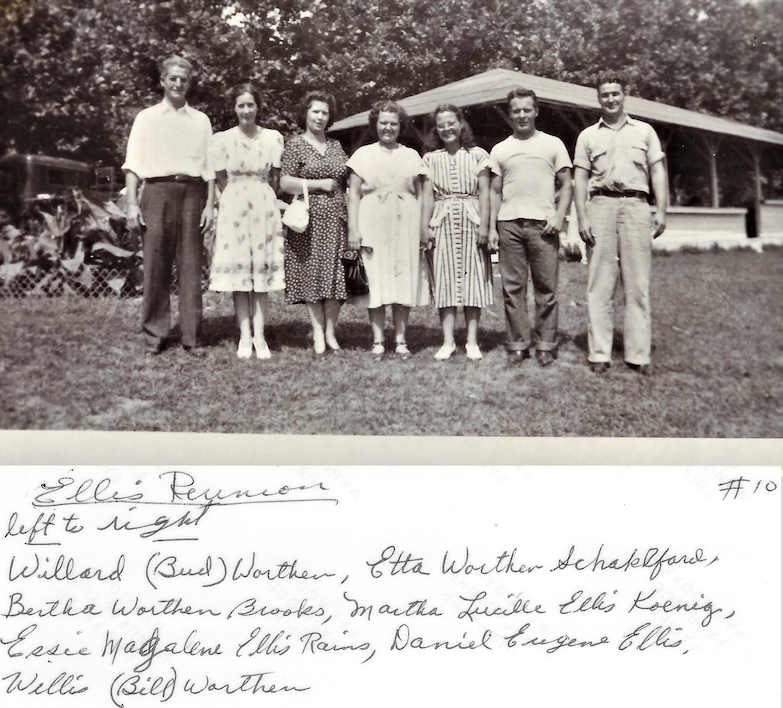 Ellis Reunion
#10
left to right
Willard (Bud) Worthen, Etta Worthen Schaklford,
Bertha Worthen Brooks, Martha Lucille Ellis Koenig,
Essie Magalene Ellis Rains, Daniel Eugene Ellis,
Willis (Bill) Worthen